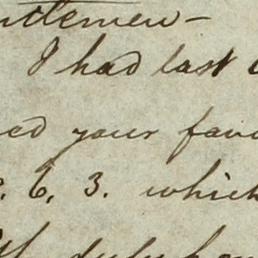 ntlemen –
I had last
ed your favo
. 6, 3. which
duly